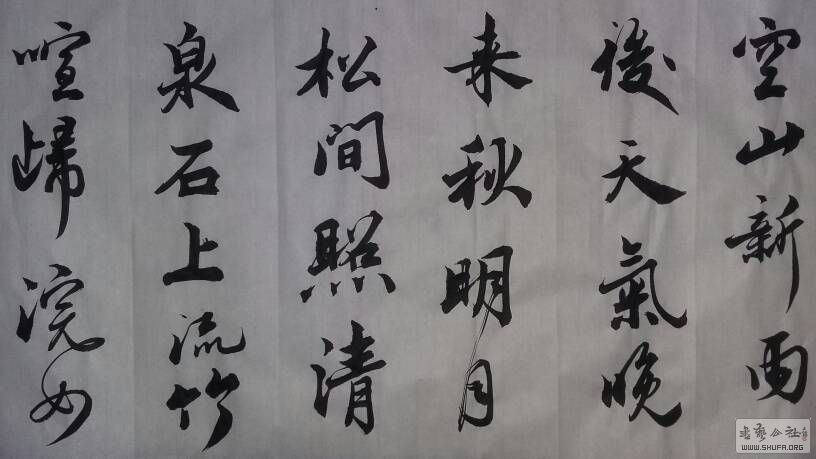 空山新雨
後天氣晚
来秋明月
松間照清
泉石上流竹
喧歸浣女
書藝公社
WWW.SHUFA.ORG